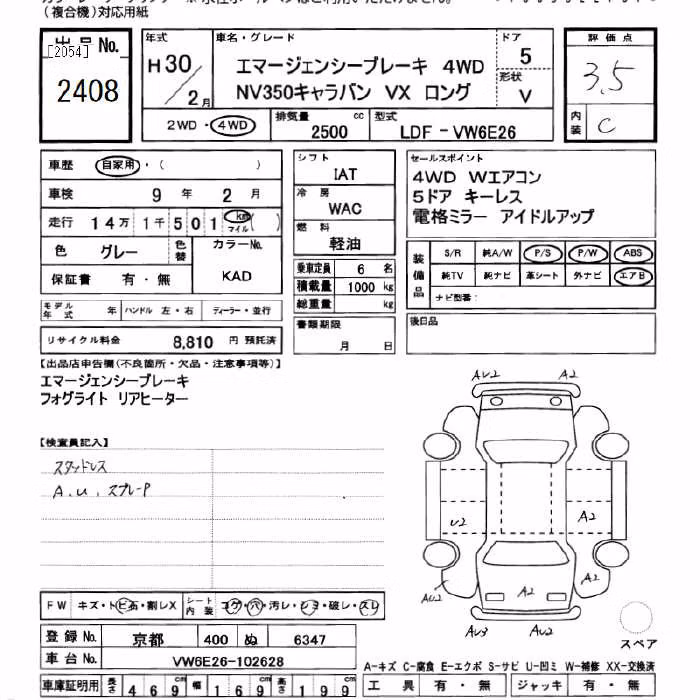 (複合機)対応用紙
出品No.
[2054]
2408
年式
H30/2月
車名・グレード
エマージェンシーブレーキ 4WD
NV350キャラバン VX ロング
ドア
5
形状
V
評価点
3.5
内装
C
2WD・4WD
排気量
2500 cc
型式
LDF-VW6E26
車歴 自家用・( )
車検 9年 2月
走行 14万 1千 501 km マイル ( )
色 グレー 色替
カラーNo. KAD
保証書 有・無
モデル年式 年 ハンドル 左・右 ディーラー・並行
リサイクル料金 8,810 円 預託済
シフト
IAT
冷房
WAC
燃料
軽油
乗車定員 6 名
積載量 1000 kg
総重量 kg
書類期限
月 日
セールスポイント
4WD Wエアコン
5ドア キーレス
電格ミラー アイドルアップ
装備品
S/R 純A/W P/S P/W ABS
純TV 純ナビ 革シート 外ナビ エアB
ナビ型番:
後日品
【出品店申告欄(不良箇所・欠品・注意事項等)】
エマージェンシーブレーキ
フォグライト リアヒーター
【検査員記入】
スタッドレス
A.U.スプレーP
AU2 A2
U2 A2
AU2 A2
AU3 AU2
スペア
FW キズ・トビ石・割レX
シート内装 コゲ・穴・汚レ・シミ・破レ・スレ
登録No. 京都 400 ぬ 6347
車台No. VW6E26-102628
車庫証明用 長さ 469cm 幅 169cm 高さ 199cm
A-キズ C-腐食 E-エクボ S-サビ U-凹ミ W-補修 XX-交換済
工具 有・無 ジャッキ 有・無